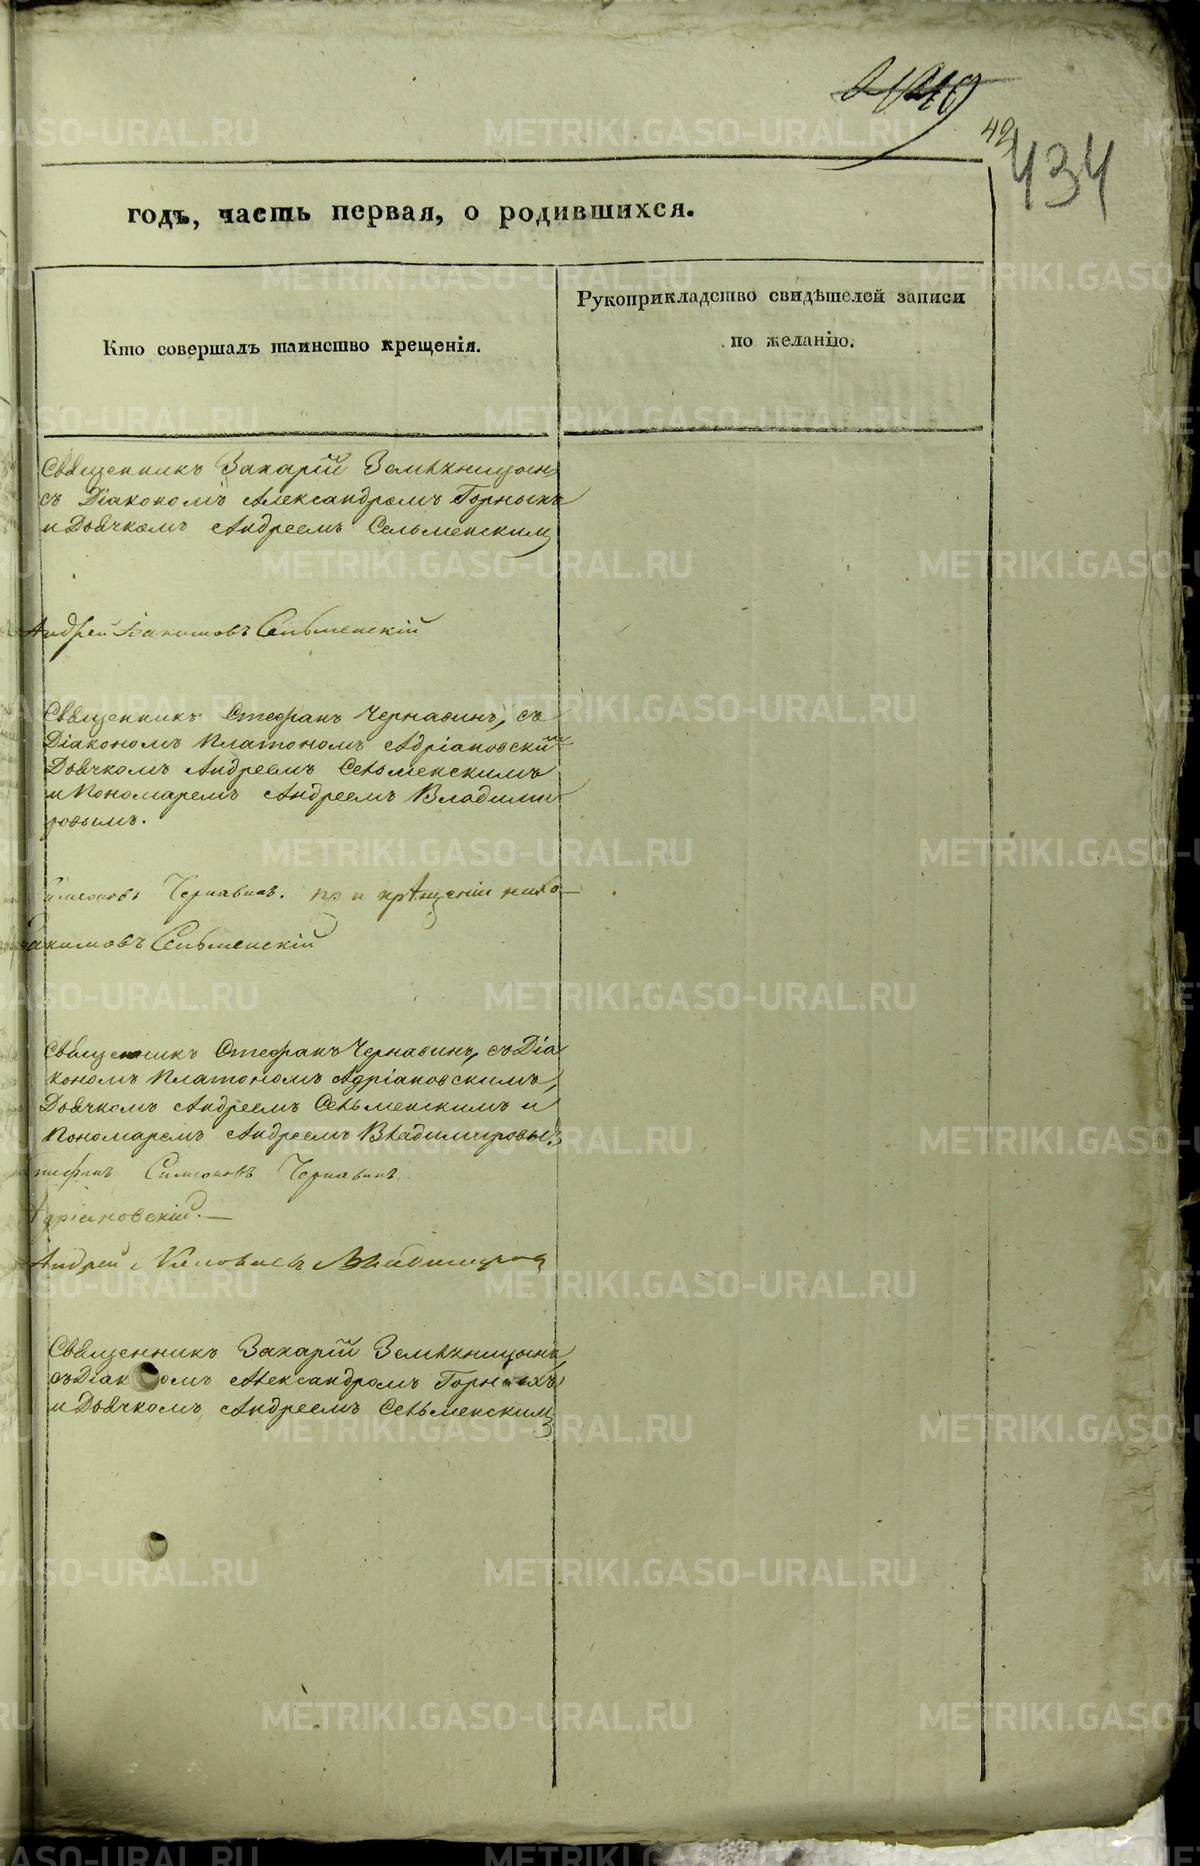 42
434
годъ, часть первая, о родившихся.
Кто совершалъ таинство крещенія.
Рукоприкладство свидѣтелей записи
по желанію.
Священникъ Захарій Земляницынъ,
съ Діакономъ Александромъ Горныхъ
и Дьячкомъ Андреемъ Сельменскимъ
Андрей Іакимовъ Сельменскій
Священникъ Стефанъ Чернавинъ, съ
Діакономъ Платономъ Адріановскимъ
Дьячкомъ Андреемъ Сельменскимъ
и Пономаремъ Андреемъ Владими
ровымъ.
Симеоновъ Чернавинъ. при крѣщеніи
Іакимовъ Сельменскій
Священникъ Стефанъ Чернавинъ, съ Діа
кономъ Платономъ Адріановскимъ,
Дьячкомъ Андреемъ Сельменскимъ и
Пономаремъ Андреемъ Владимировымъ
Стефанъ Симеоновъ Чернавинъ.
Адріановскій.—
Андрей Владимировъ
Священникъ Захарій Земляницынъ,
съ Діакономъ Александромъ Горныхъ
и Дьячкомъ Андреемъ Сельменскимъ
METRIKI.GASO-URAL.RU